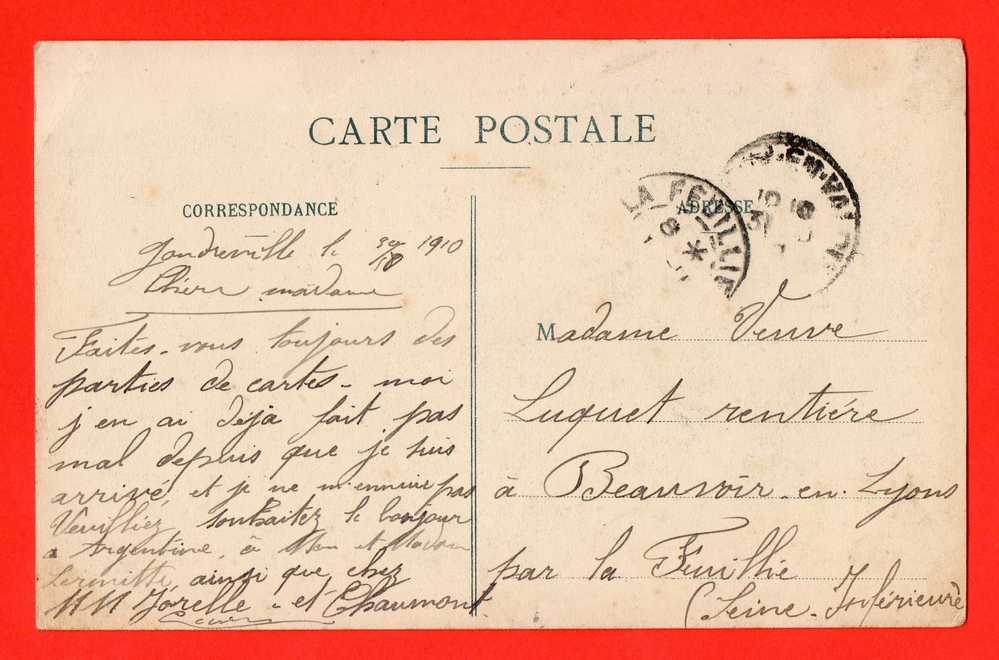 CARTE POSTALE
CORRESPONDANCE
Gondreville le 30/10 1910
Chère madame
Faites-vous toujours des
parties de cartes - moi
j'en ai déja fait pas
mal depuis que je suis
arrivé, et je ne m'ennuie pas
Veuilliez souhaitez le bonjour
a Argentine, à Mon et Madame
Lermitte, ainsi que chez
MM Jorelle et Chaumont.
LA FEUILLIE
8
EN-VA
10
31
ADRESSE
Madame Veuve
Luquet rentière
à Beauvoir-en-Lyons
par la Feuillie
(Seine-Inférieure)